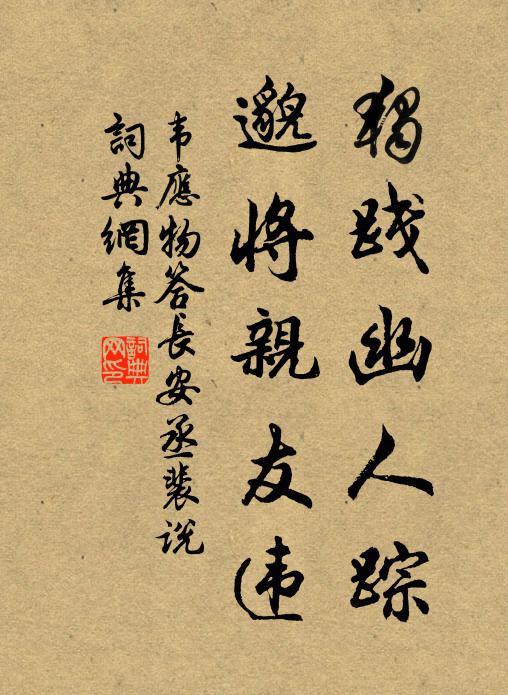 獨踐幽人踪
邈將親友违
韦應物答長安丞裴說
詞典網集
詞典网印